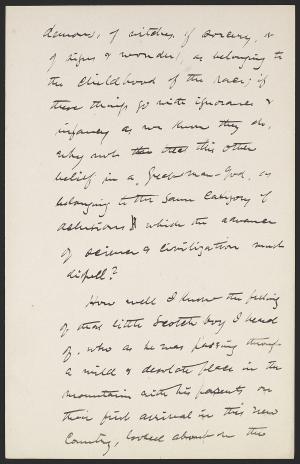 demons, of witches, of sorcery, &
of signs & wonders, as belonging to
the childhood of the race; if
these things go with ignorance &
infancy as we know they do,
why not this other
belief in a great man-God, as
belonging to the same category of
delusions which the advance
of science & civilization must
dispell?
How well I know the feeling
of that little Scotch boy I heard
of, who as he was passing through
a wild & desolate place in the
mountains with his parents on
their first arrival in this new
Country, looked about on the